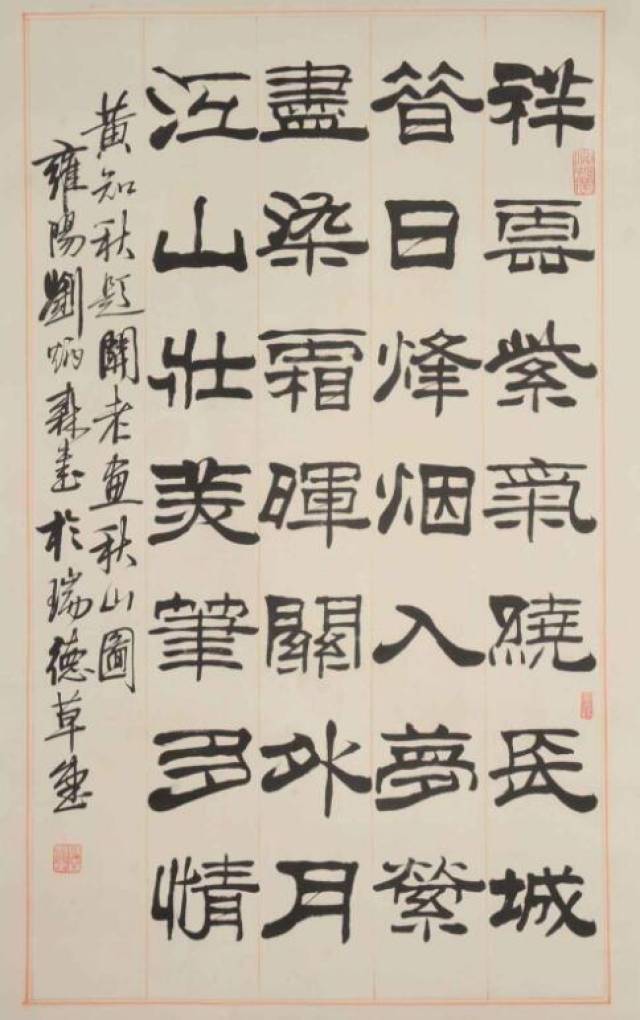 祥雲紫氣繞長城
昔日烽烟入夢縈
盡染霜暉關外月
江山壯美筆多情
黃知秋題關老畫秋山圖
雍陽劉炳森書於瑞德草堂